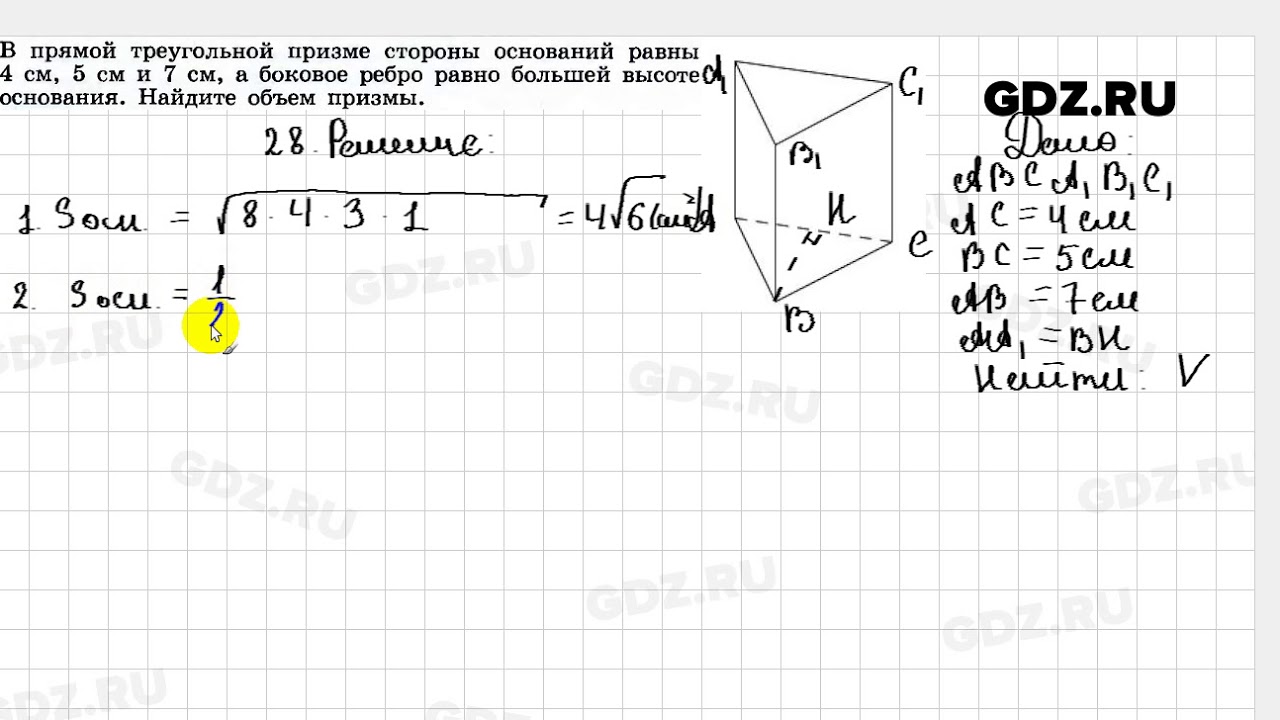 В прямой треугольной призме стороны оснований равны
4 см, 5 см и 7 см, а боковое ребро равно большей высоте
основания. Найдите объем призмы.
GDZ.RU
28. Решение:
Дано:
ABCA₁B₁C₁
AC = 4 см
BC = 5 см
AB = 7 см
AA₁ = BH
Найти: V
1. Sосн. = √8·4·3·1 = 4√6 (см²)
2. Sосн. = 1/2
A₁
C₁
B₁
A
H
C
B
GDZ.RU
GDZ.RU
GDZ.RU
GDZ.RU
GDZ.RU
GDZ.RU
GDZ.RU
GDZ.RU
GDZ.RU
GDZ.RU